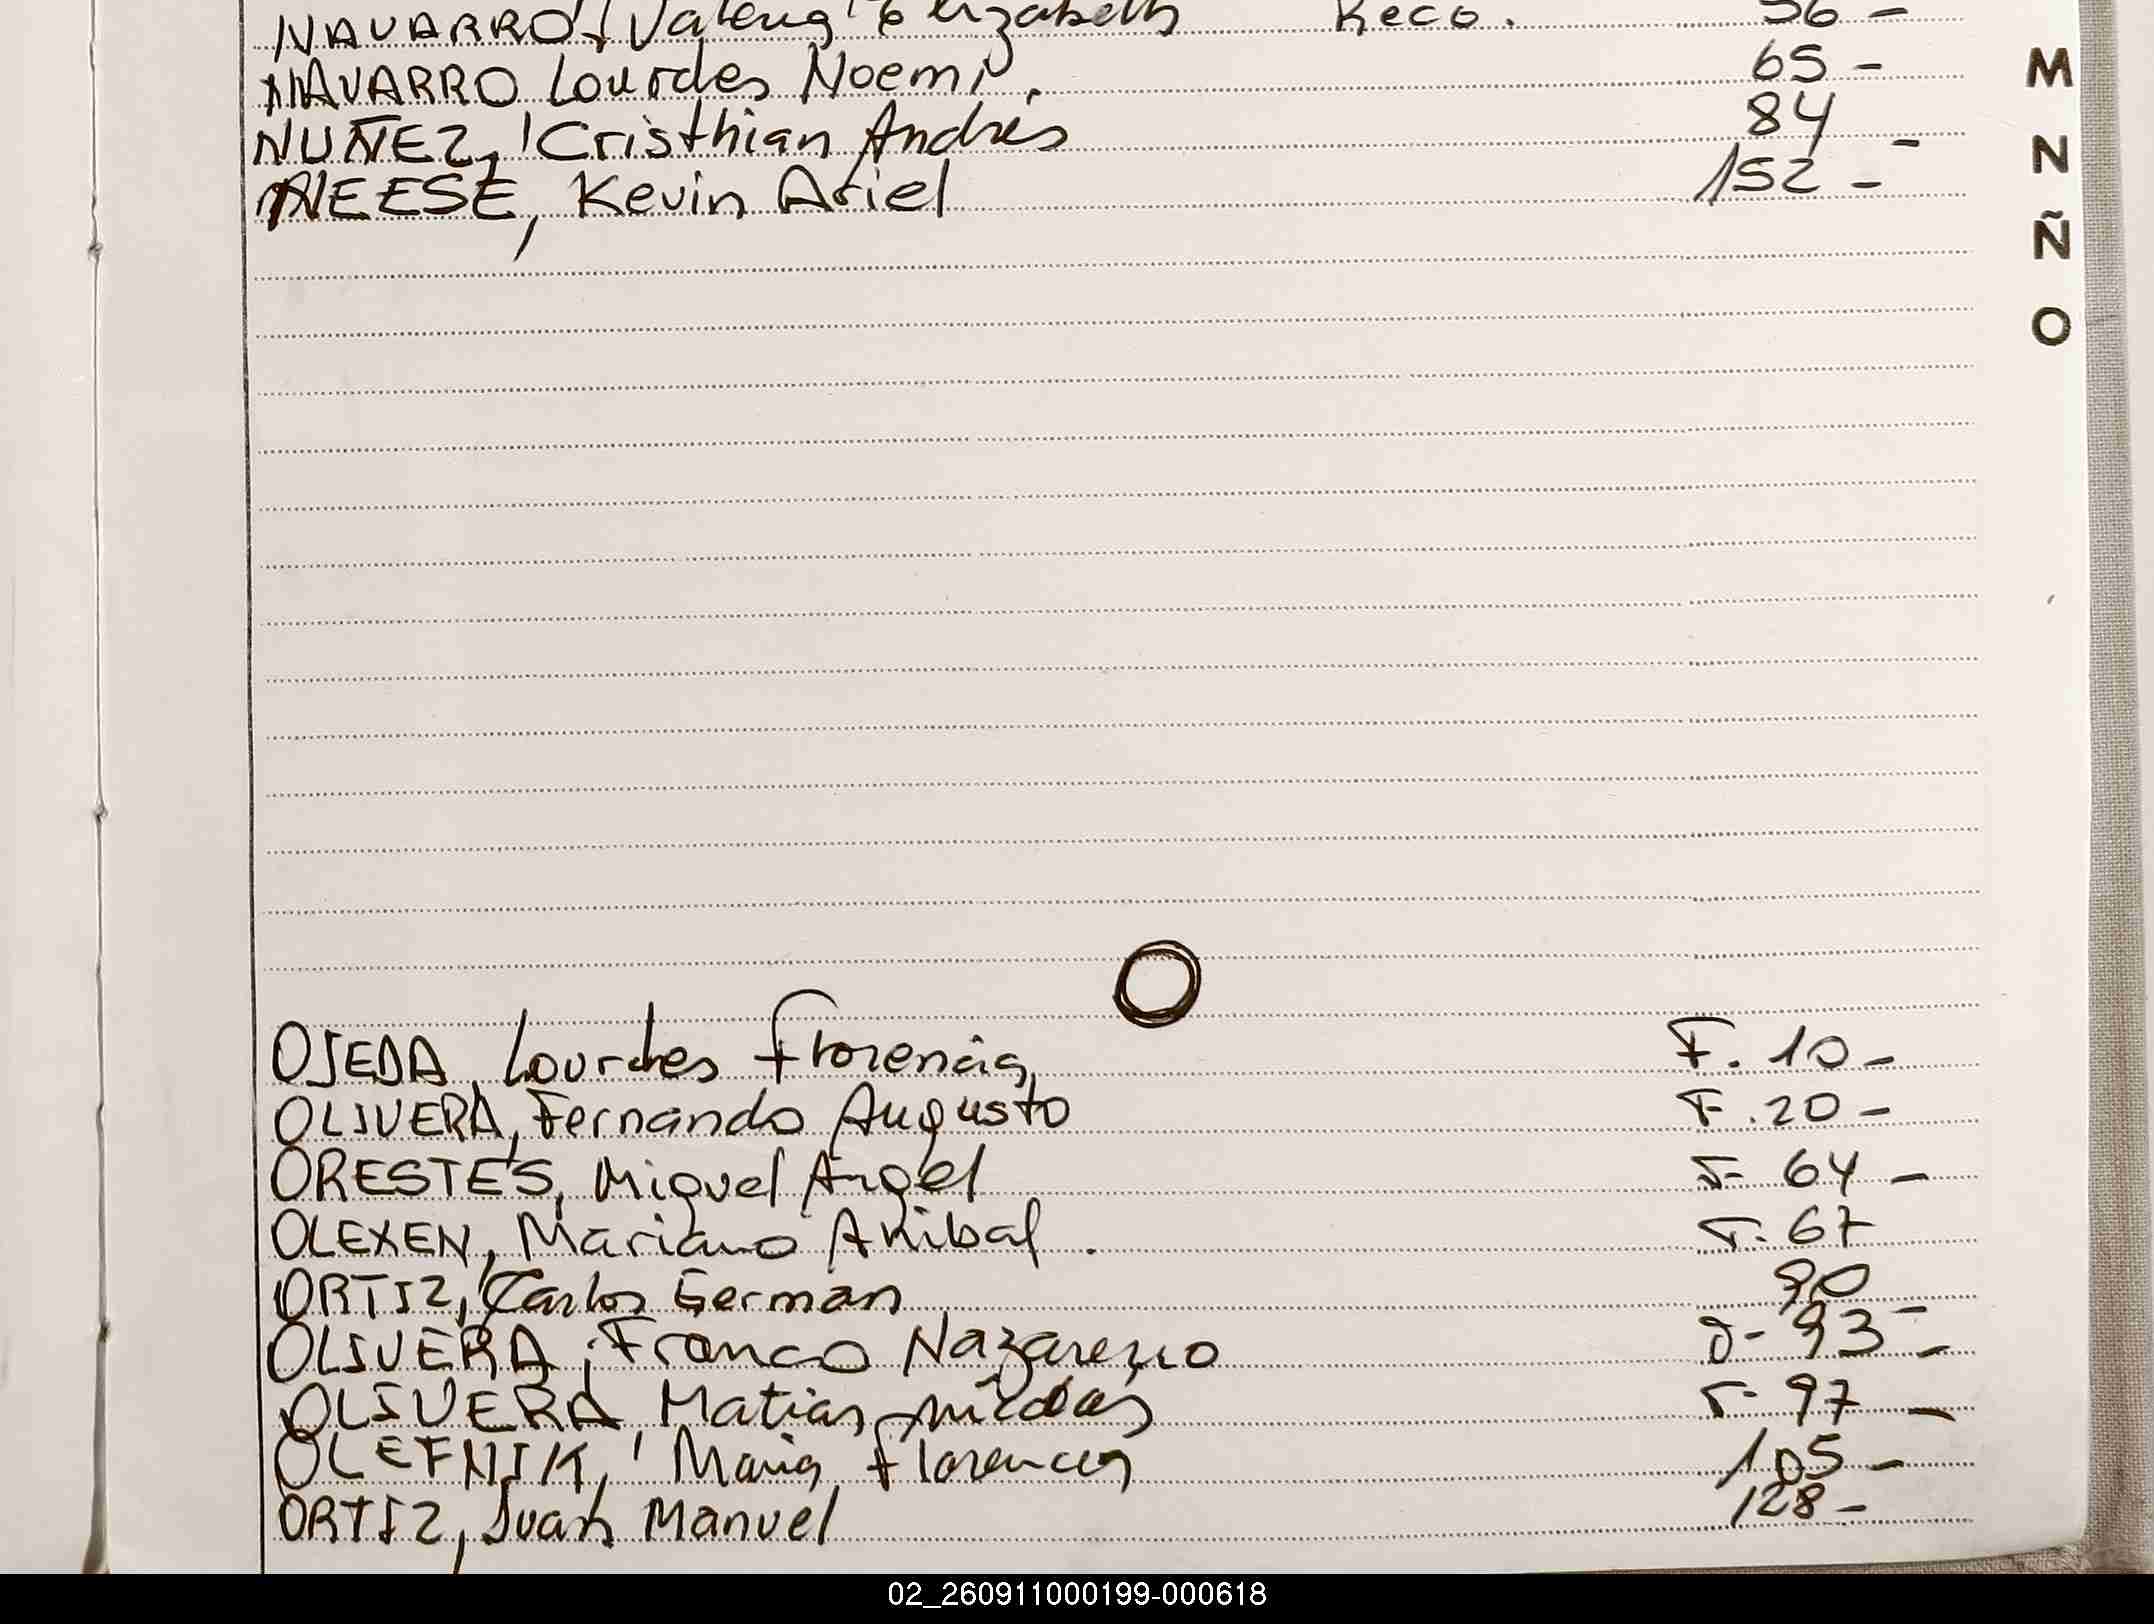 NAVARRO, Valeria Elizabeth Reco. 56 -
NAVARRO Lourdes Noemi. 65 -
NUÑEZ, Cristhian Andrés 84 -
NEESE, Kevin Ariel 152 -
M
N
Ñ
O
O
OJEDA, Lourdes Florencia F. 10 -
OLIVERA, Fernando Augusto F. 20 -
ORESTES, Miguel Angel F- 64 -
OLEXEN, Mariano Anibal. F. 67
ORTIZ, Carlos German 90 -
OLIVERA, Franco Nazareno 93 -
OLIVERA, Matias Nicolas F- 97 -
OLEFNIK, Maria Florencia 105 -
ORTIZ, Juan Manuel 128 -
02_260911000199-000618